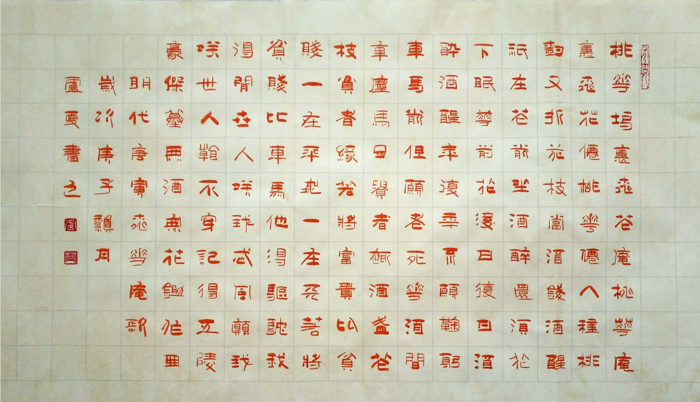 桃花塢裏桃花庵桃花庵
裏桃花僊桃花僊人種桃
樹又折花枝當酒錢酒醒
祇在花前坐酒醉還須花
下眠花前花後日復日酒
醉酒醒年復年不願鞠躬
車馬前但願老死花酒間
車塵馬足貴者趣酒盞花
枝貧者緣若將富貴比貧
賤一在平地一在天若將
貧賤比車馬他得驅馳我
得閒世人咲我忒風顛我
咲世人看不穿記得五陵
豪傑墓無酒無花鋤作田
明代唐寅桃花庵歌
歲次庚子月
書之